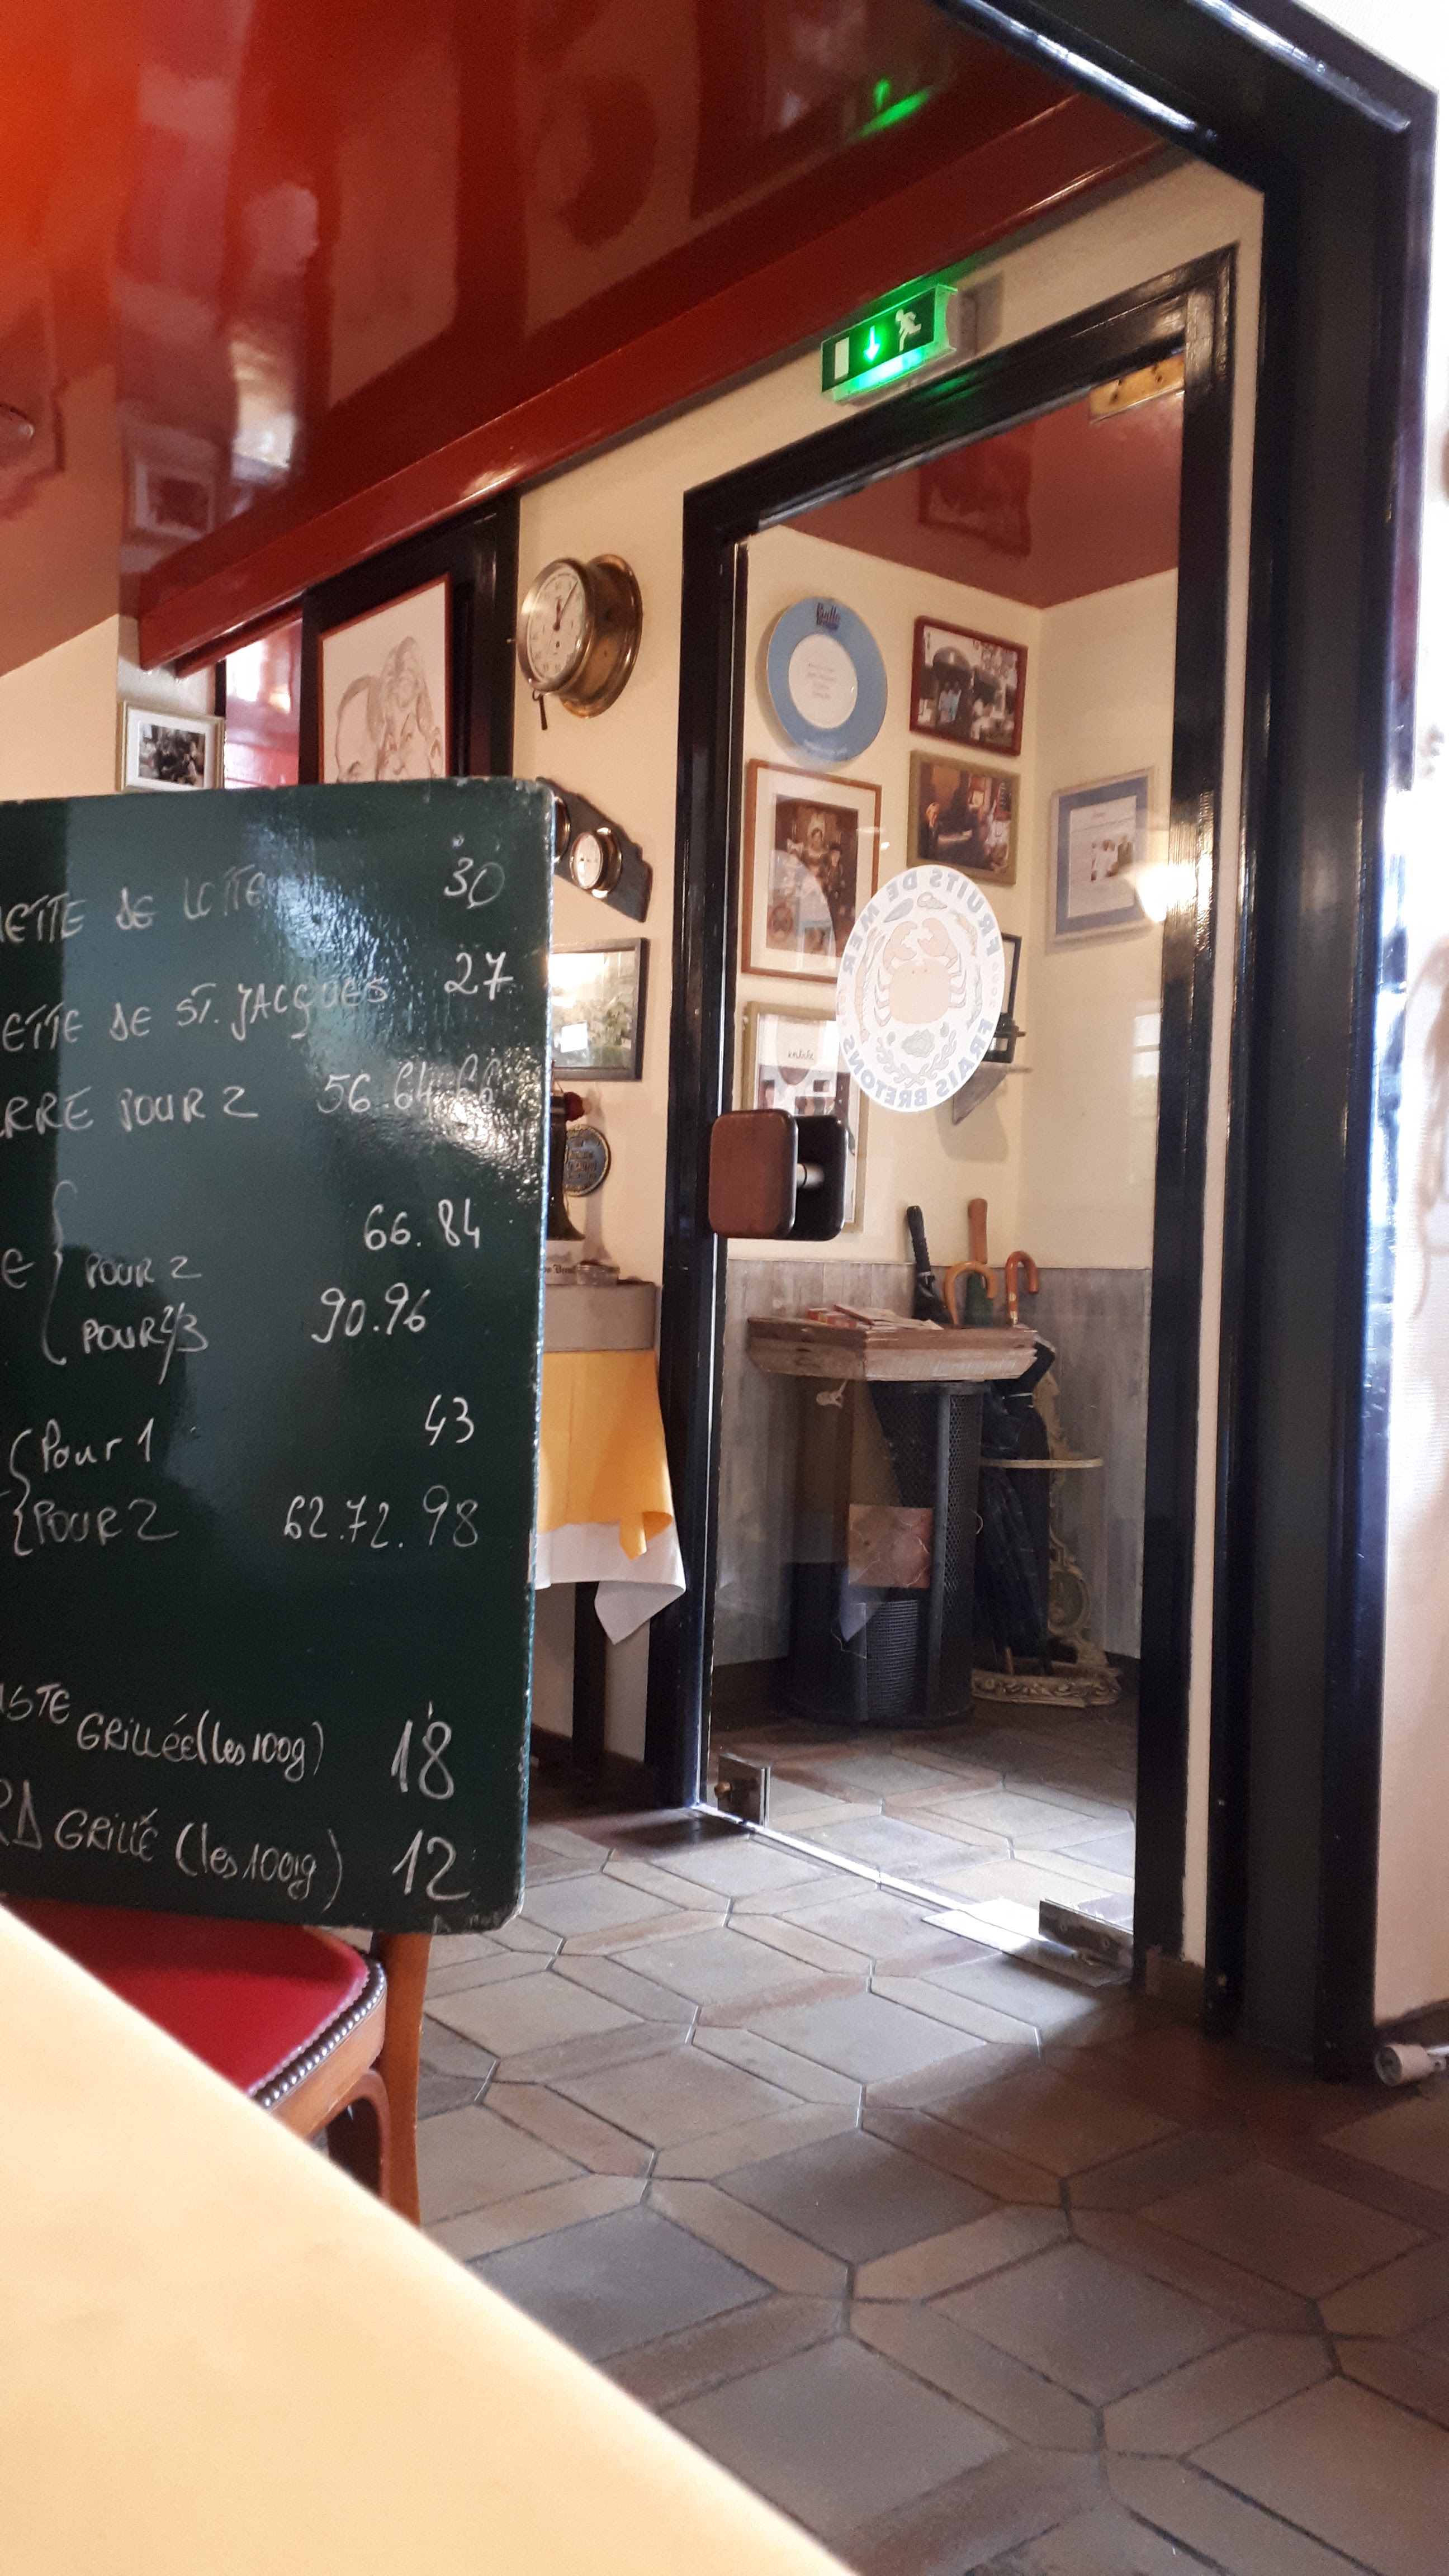 ETTE DE LOTTE 30
ETTE DE ST. JACQUES 27
RRE POUR 2 56 64 66
66. 84
E { POUR 2
POUR 2/3 90.96
{ Pour 1 43
{ POUR 2 62.72.98
STE GRILLÉE (les 100g) 18
RD GRILLÉ (les 100g) 12
FRUITS DE MER
FRAIS BRETONS
entrée